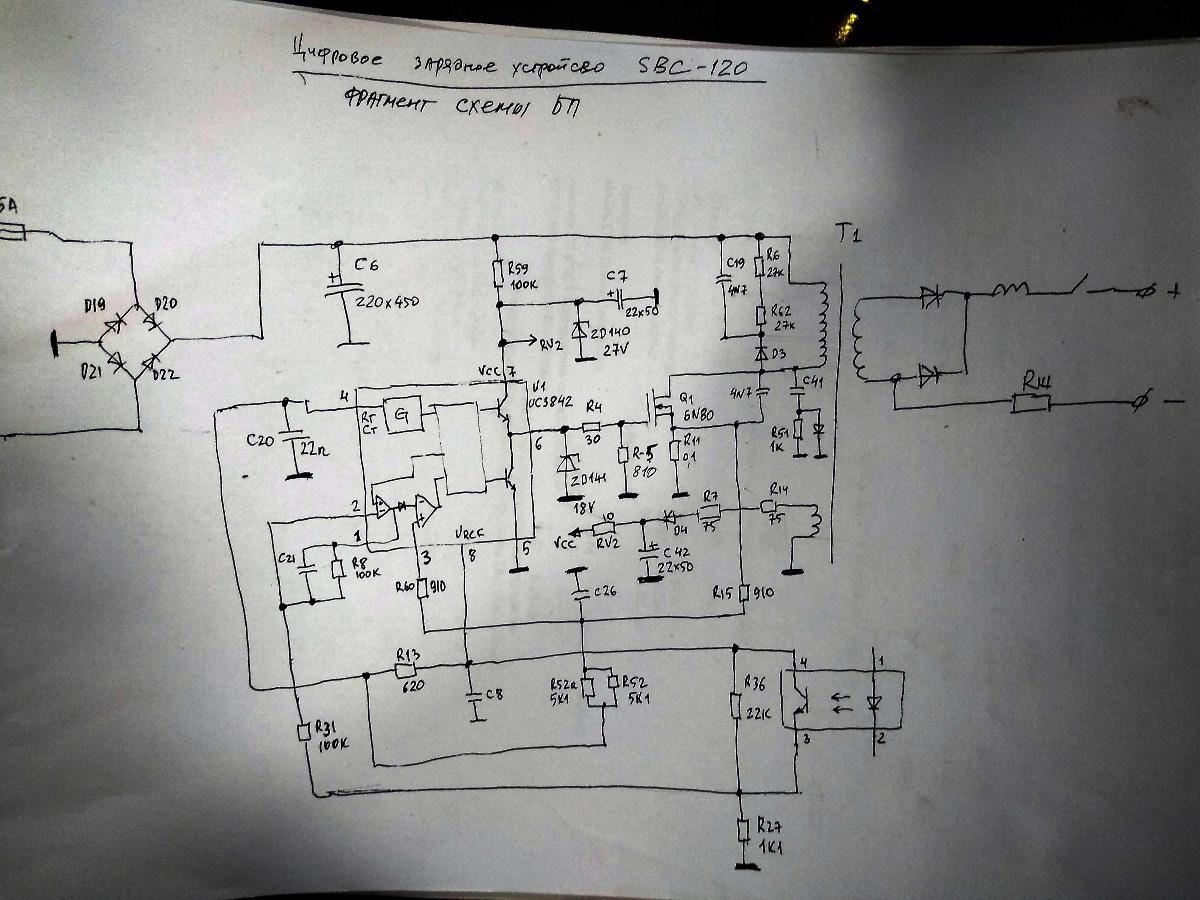 Цифровое зарядное устройство SBC-120
ФРАГМЕНТ СХЕМЫ БП
5A
D19
D20
D21
D22
C6
220x450
R59
100K
C7
22x50
ZD140
27V
RV2
C19
4N7
R6
27K
R62
27K
D3
T1
+
R14
−
VCC 7
U1
UC3842
4
RT
CT
G
C20
22n
6
R4
30
Q1
6N80
4N7
C41
R51
1K
R5
810
R11
0,1
ZD141
18V
2
1
C21
R8
100K
3
VREF
8
5
R60
910
VCC
10
RV2
C42
22x50
D4
R7
75
R14
75
C26
R15
910
R13
620
C8
R52a
5K1
R52
5K1
R36
22K
4
1
3
2
R31
100K
R27
1K1